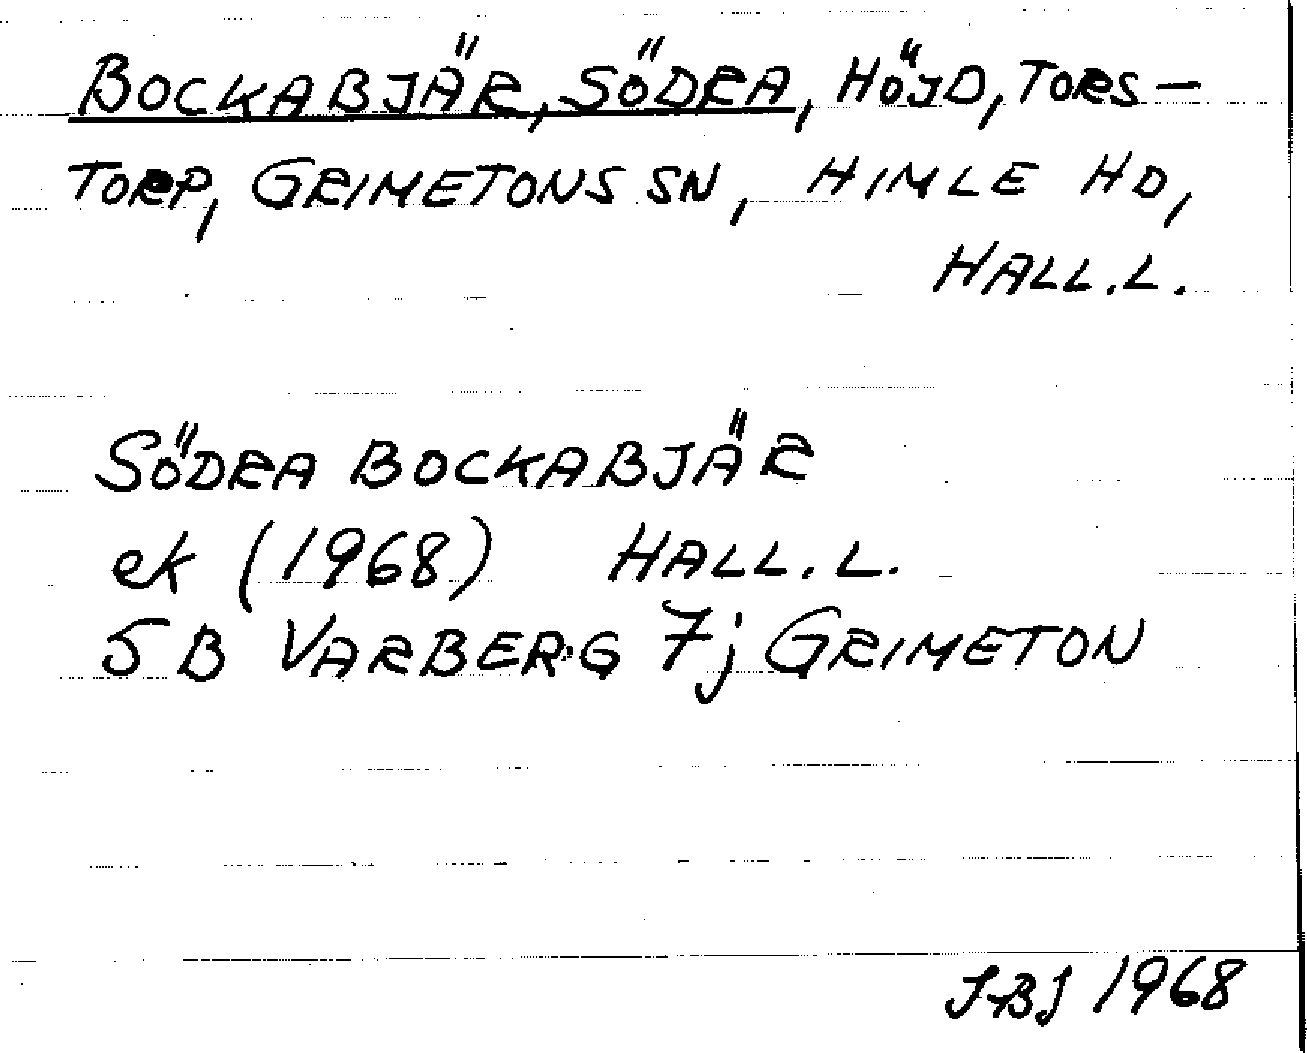 BOCKABJÄR, SÖDRA, HÖJD, TORS-
TORP, GRIMETONS SN, HIMLE HD,
HALL.L.
SÖDRA BOCKABJÄR
ek (1968) HALL.L.
5B VARBERG 7j GRIMETON
1968